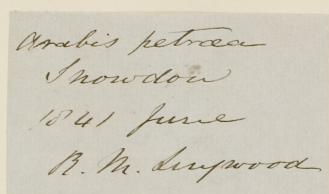 Arabis petræa
Snowdon
1841 June
R. M. Lingwood